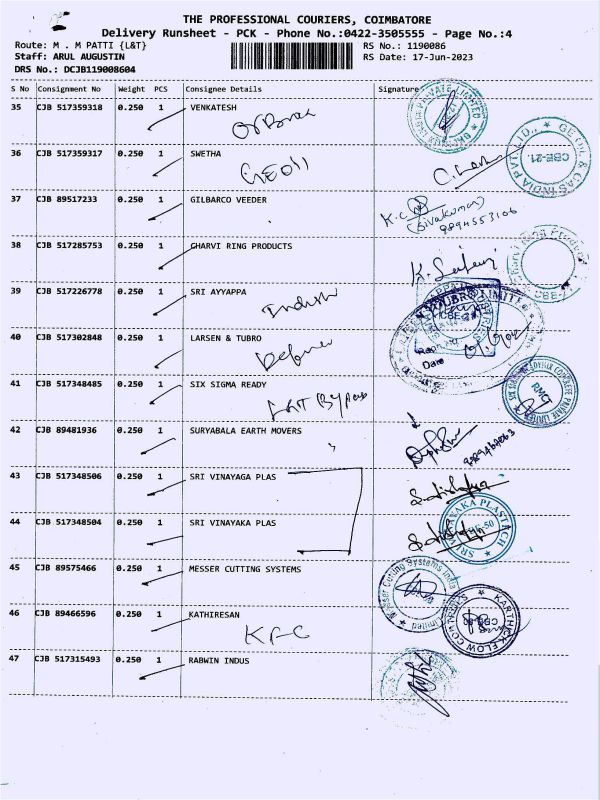 THE PROFESSIONAL COURIERS, COIMBATORE
Delivery Runsheet - PCK - Phone No.:0422-3505555 - Page No.:4
Route: M . M PATTI {L&T} RS No.: 1190086
Staff: ARUL AUGUSTIN RS Date: 17-Jun-2023
DRS No.: DCJB119008604
S No Consignment No Weight PCS Consignee Details Signature
35 CJB 517359318 0.250 1 VENKATESH
36 CJB 517359317 0.250 1 SWETHA
GEOil
CBE-21.
37 CJB 89517233 0.250 1 GILBARCO VEEDER
(Sivakumar)
9894553106
38 CJB 517285753 0.250 1 CHARVI RING PRODUCTS
39 CJB 517226778 0.250 1 SRI AYYAPPA
40 CJB 517302848 0.250 1 LARSEN & TUBRO
Date
41 CJB 517348485 0.250 1 SIX SIGMA READY
L&T Bypass
RMC
42 CJB 89481936 0.250 1 SURYABALA EARTH MOVERS
43 CJB 517348506 0.250 1 SRI VINAYAGA PLAS
44 CJB 517348504 0.250 1 SRI VINAYAKA PLAS
45 CJB 89575466 0.250 1 MESSER CUTTING SYSTEMS
Messer Cutting Systems India
Limited
46 CJB 89466596 0.250 1 KATHIRESAN
KFC
KARTHICK FLOW CONTROLS
47 CJB 517315493 0.250 1 RABWIN INDUS